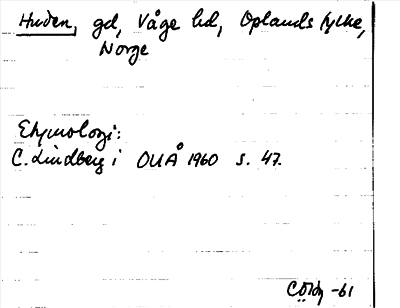 Huden, gd, Våge hd, Oplands fylke,
Norge
Etymologi:
C. Lindberg i OUÅ 1960 s. 47.
-61